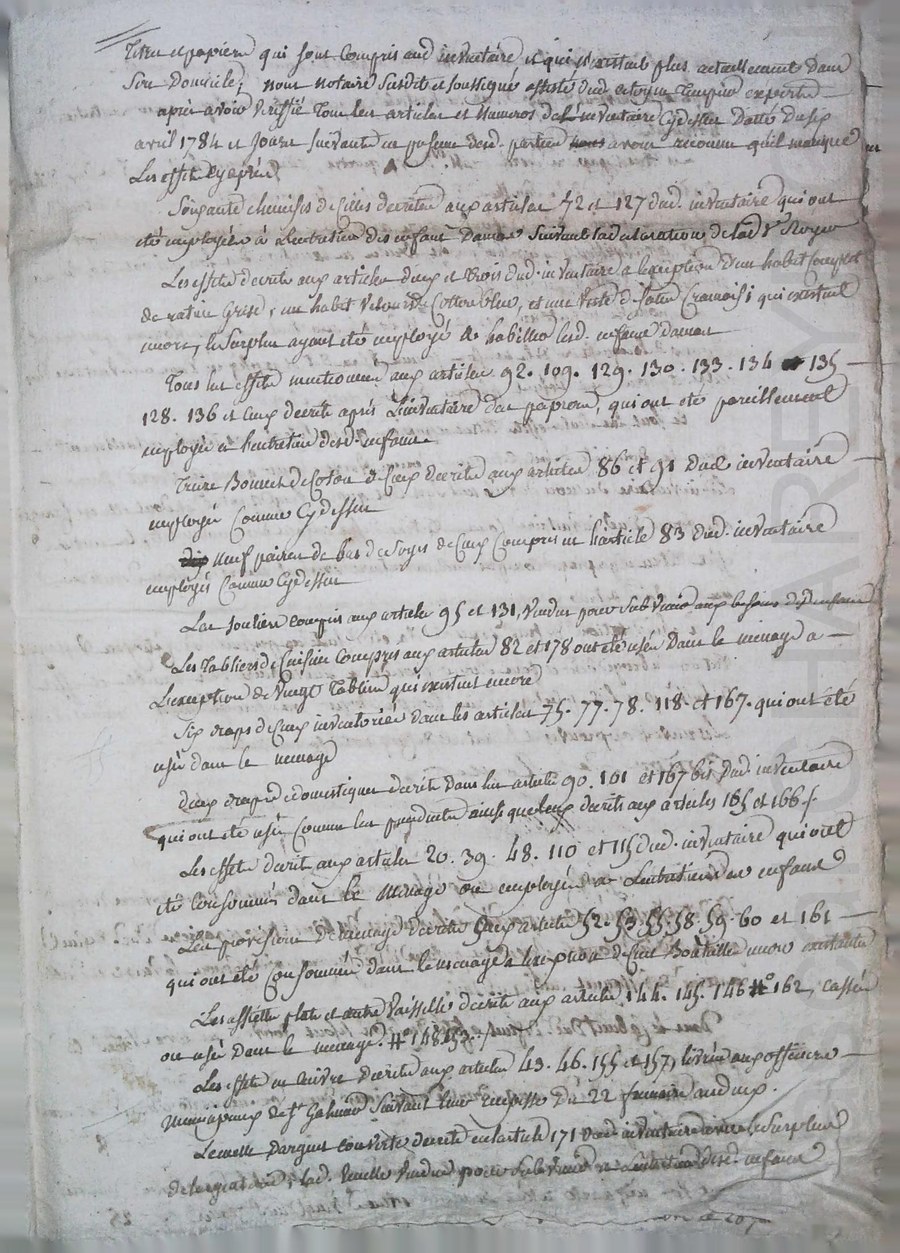 Titres et papiers qui sont compris aud inventaire et qui n'existait plus actuellement dans
Son Domicile, nous notaire Susdit et soussigné assisté dud. citoyen expert
après avoir vériffié Tous les articles et Numeros de l'inventaire Cydessus Datté du six
avril 1784 et jours suivants en presence desd. parties nous avons reconnu qu'il manque
Les effets cyaprès
Soixante chemises de filles decrites aux articles 72 et 127 dud. inventaire qui ont
été employées à L'entretien des enfans Suivant la declaration de lad. Ve Royer
Les effets decrits aux articles deux et trois dud. inventaire a l'exception d'un habit complet
de ratine Grise, un habit Velours de Cotton bleu, et une Veste de satin Cramoisi qui existent
encore, le Surplus ayant été employé à habiller lesd. enfans
Tous les effets mentionnés aux articles 92. 109. 129. 130. 133. 134 135
128. 136 et ceux decrits après L'inventaire des papiers, qui ont été pareillement
employés à l'entretien desd. enfans
Treize Bonnets de Coton de ceux decrits aux articles 86 et 91 dud. inventaire
employés Comme Cydessus
dix neuf paires de bas de soye de ceux Compris en l'article 83 dud. inventaire
employés Comme Cydessus
Les souliers compris aux articles 95 et 131, vendus pour Subvenir aux besoins desd enfans
Les Tabliers de Cuisine Compris aux articles 82 et 178 ont été usés Dans le menage a
L'exception de Vingt Tabliers qui existent encore
Six draps de ceux inventoriés dans les articles 75. 77. 78. 118. et 167. qui ont été
usés dans le menage
deux draps de domestiques decrits Dans les articles 90. 101 et 167 bis Dud. inventaire
qui ont été usés Comme les precedents ainsi que ceux decrits aux articles 165 et 166 f.
Les effets decrits aux articles 20. 39. 48. 110 et 115 dud. inventaire qui ont
été consommés dans le Menage ou employés a L'entretien des enfans
Les provisions de menage decrites aux articles 52. 53. 55. 58. 59. 60 et 161
qui ont été Consommées dans le menage à l'exception de cent Bouteilles encore existantes
Les assiettes plats et autre Vaisselle decrits aux articles 144. 145. 146 # 162, cassés
ou usés Dans le menage. # 148. 153.
Les effets en cuivre Decrits aux articles 43. 46. 155 et 157, livrés aux officiers
municipaux de St Galmier Suivant leur recepissé Du 22 frimaire an deux.
L'ecuelle D'argent couverte decrite en l'article 171 dud. inventaire
lad. Ecuelle Vendue pour Subvenir à L'entretien desd. enfans